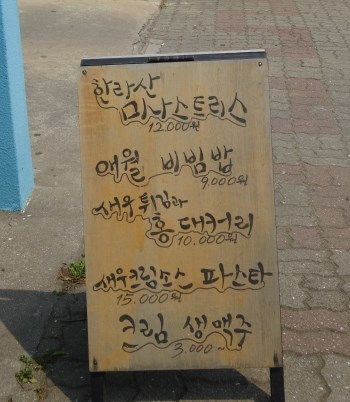 한라산
미나스트리스
12.000원
애월 비빔밥
9.000원
새우 튀김과
홍 대커리
10.000원
새우크림소스 파스타
15.000원
크림 생맥주
3.000~